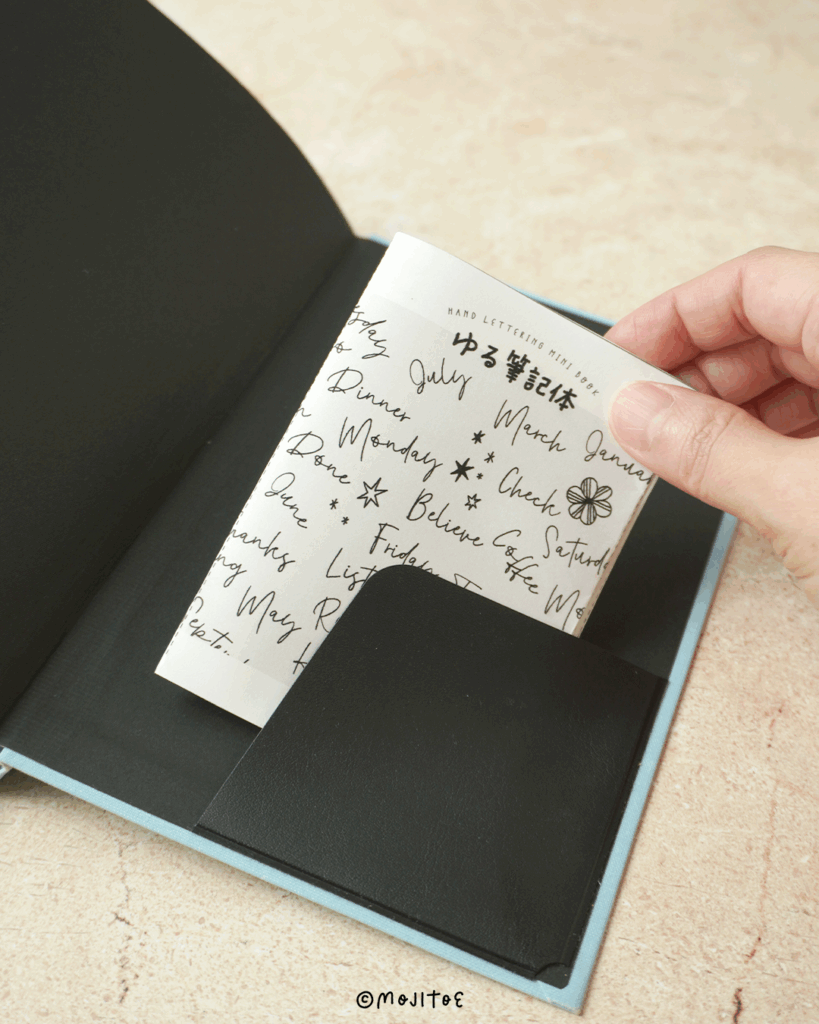 HAND LETTERING MINI BOOK
ゆる筆記体
July
March
Dinner
Monday
Check
Done
Believe
Coffee
June
Friday
List
May
©MOJITOE